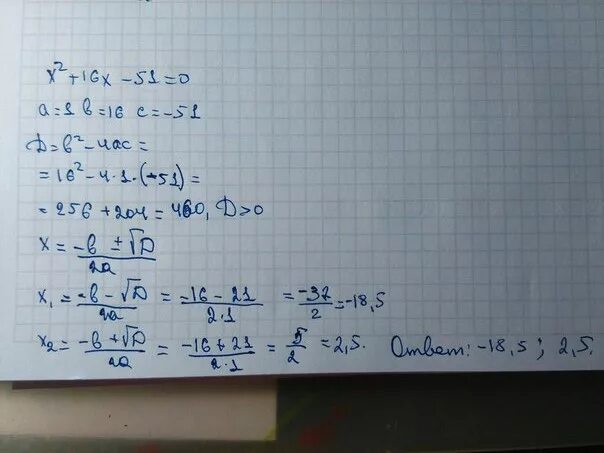 x² + 16x − 51 = 0
a = 1 b = 16 c = −51
D = b² − 4ac =
= 16² − 4 · 1 · (−51) =
= 256 + 204 = 460, D > 0
x = (−b ± √D) / 2a
x₁ = (−b − √D) / 2a = (−16 − 21) / 2·1 = −37 / 2 = −18,5
x₂ = (−b + √D) / 2a = (−16 + 21) / 2·1 = 5 / 2 = 2,5. Ответ: −18,5 ; 2,5.